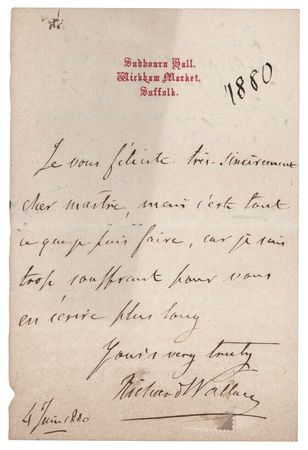 Sudbourn Hall,
Wickham Market,
Suffolk.
1880
Je vous félicite très-sincèrement
cher maître, mais c'est tout
ce que je puis faire, car je suis
trop souffrant pour vous
en écrire plus long
Yours very truly
Richard Wallace
4 Juin 1880